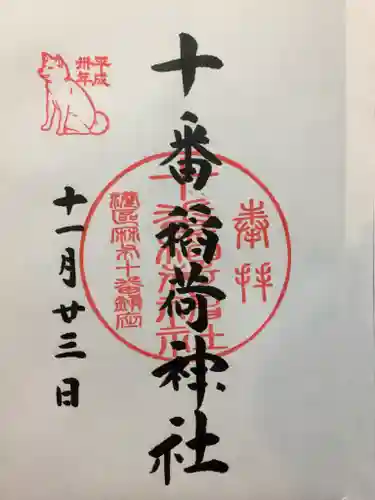 奉拝
十番稲荷神社
港区麻布十番鎮座
平成
卅年
十一月廿三日